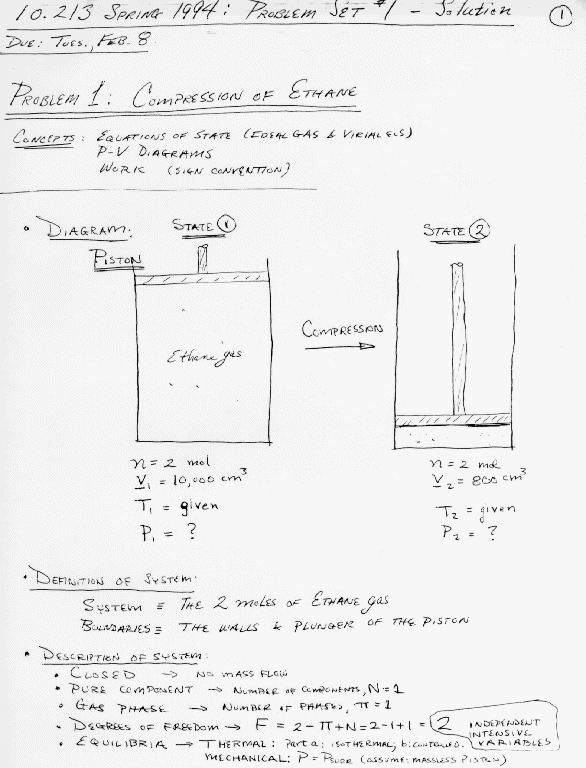 10.213 SPRING 1994: PROBLEM SET #1 - Solution
①
DUE: TUES., FEB. 8.
PROBLEM 1: COMPRESSION OF ETHANE
CONCEPTS: EQUATIONS OF STATE (IDEAL GAS & VIRIAL EQS)
P-V DIAGRAMS
WORK (SIGN CONVENTION)
• DIAGRAM:
STATE ①
PISTON
Ethane gas
n = 2 mol
V₁ = 10,000 cm³
T₁ = given
P₁ = ?
COMPRESSION
STATE ②
n = 2 mol
V₂ = 800 cm³
T₂ = given
P₂ = ?
• DEFINITION OF SYSTEM:
SYSTEM ≡ THE 2 MOLES OF ETHANE gas
BOUNDARIES ≡ THE WALLS & PLUNGER OF THE PISTON
• DESCRIPTION OF SYSTEM:
• CLOSED → NO MASS FLOW
• PURE COMPONENT → NUMBER OF COMPONENTS, N = 1
• GAS PHASE → NUMBER OF PHASES, π = 1
• DEGREES OF FREEDOM → F = 2 - π + N = 2 - 1 + 1 = 2 INDEPENDENT
INTENSIVE
VARIABLES
• EQUILIBRIA → THERMAL: Part a: ISOTHERMAL; b:
MECHANICAL: P = (ASSUME: MASSLESS PISTON)